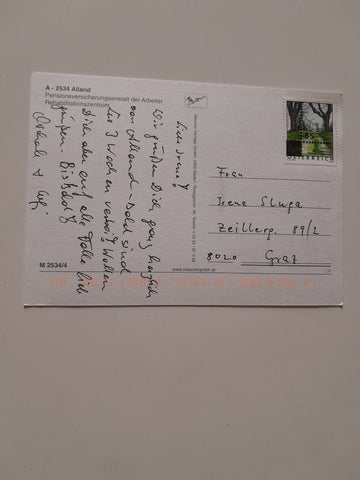 A - 2534 Alland
Pensionsversicherungsanstalt der Arbeiter
Rehabilitationszentrum
Liebe Irene!
Wir grüßen Dich ganz herzlich
von Alland - bald sind
die 3 Wochen vorbei. Wollen
Dich aber auf alle Fälle lieb
grüßen. Bis bald
M 2534/4
www.maxverlag.at
55
ÖSTERREICH
Frau
Irene Sluga
Zeillerg. 89/2
8020 Graz